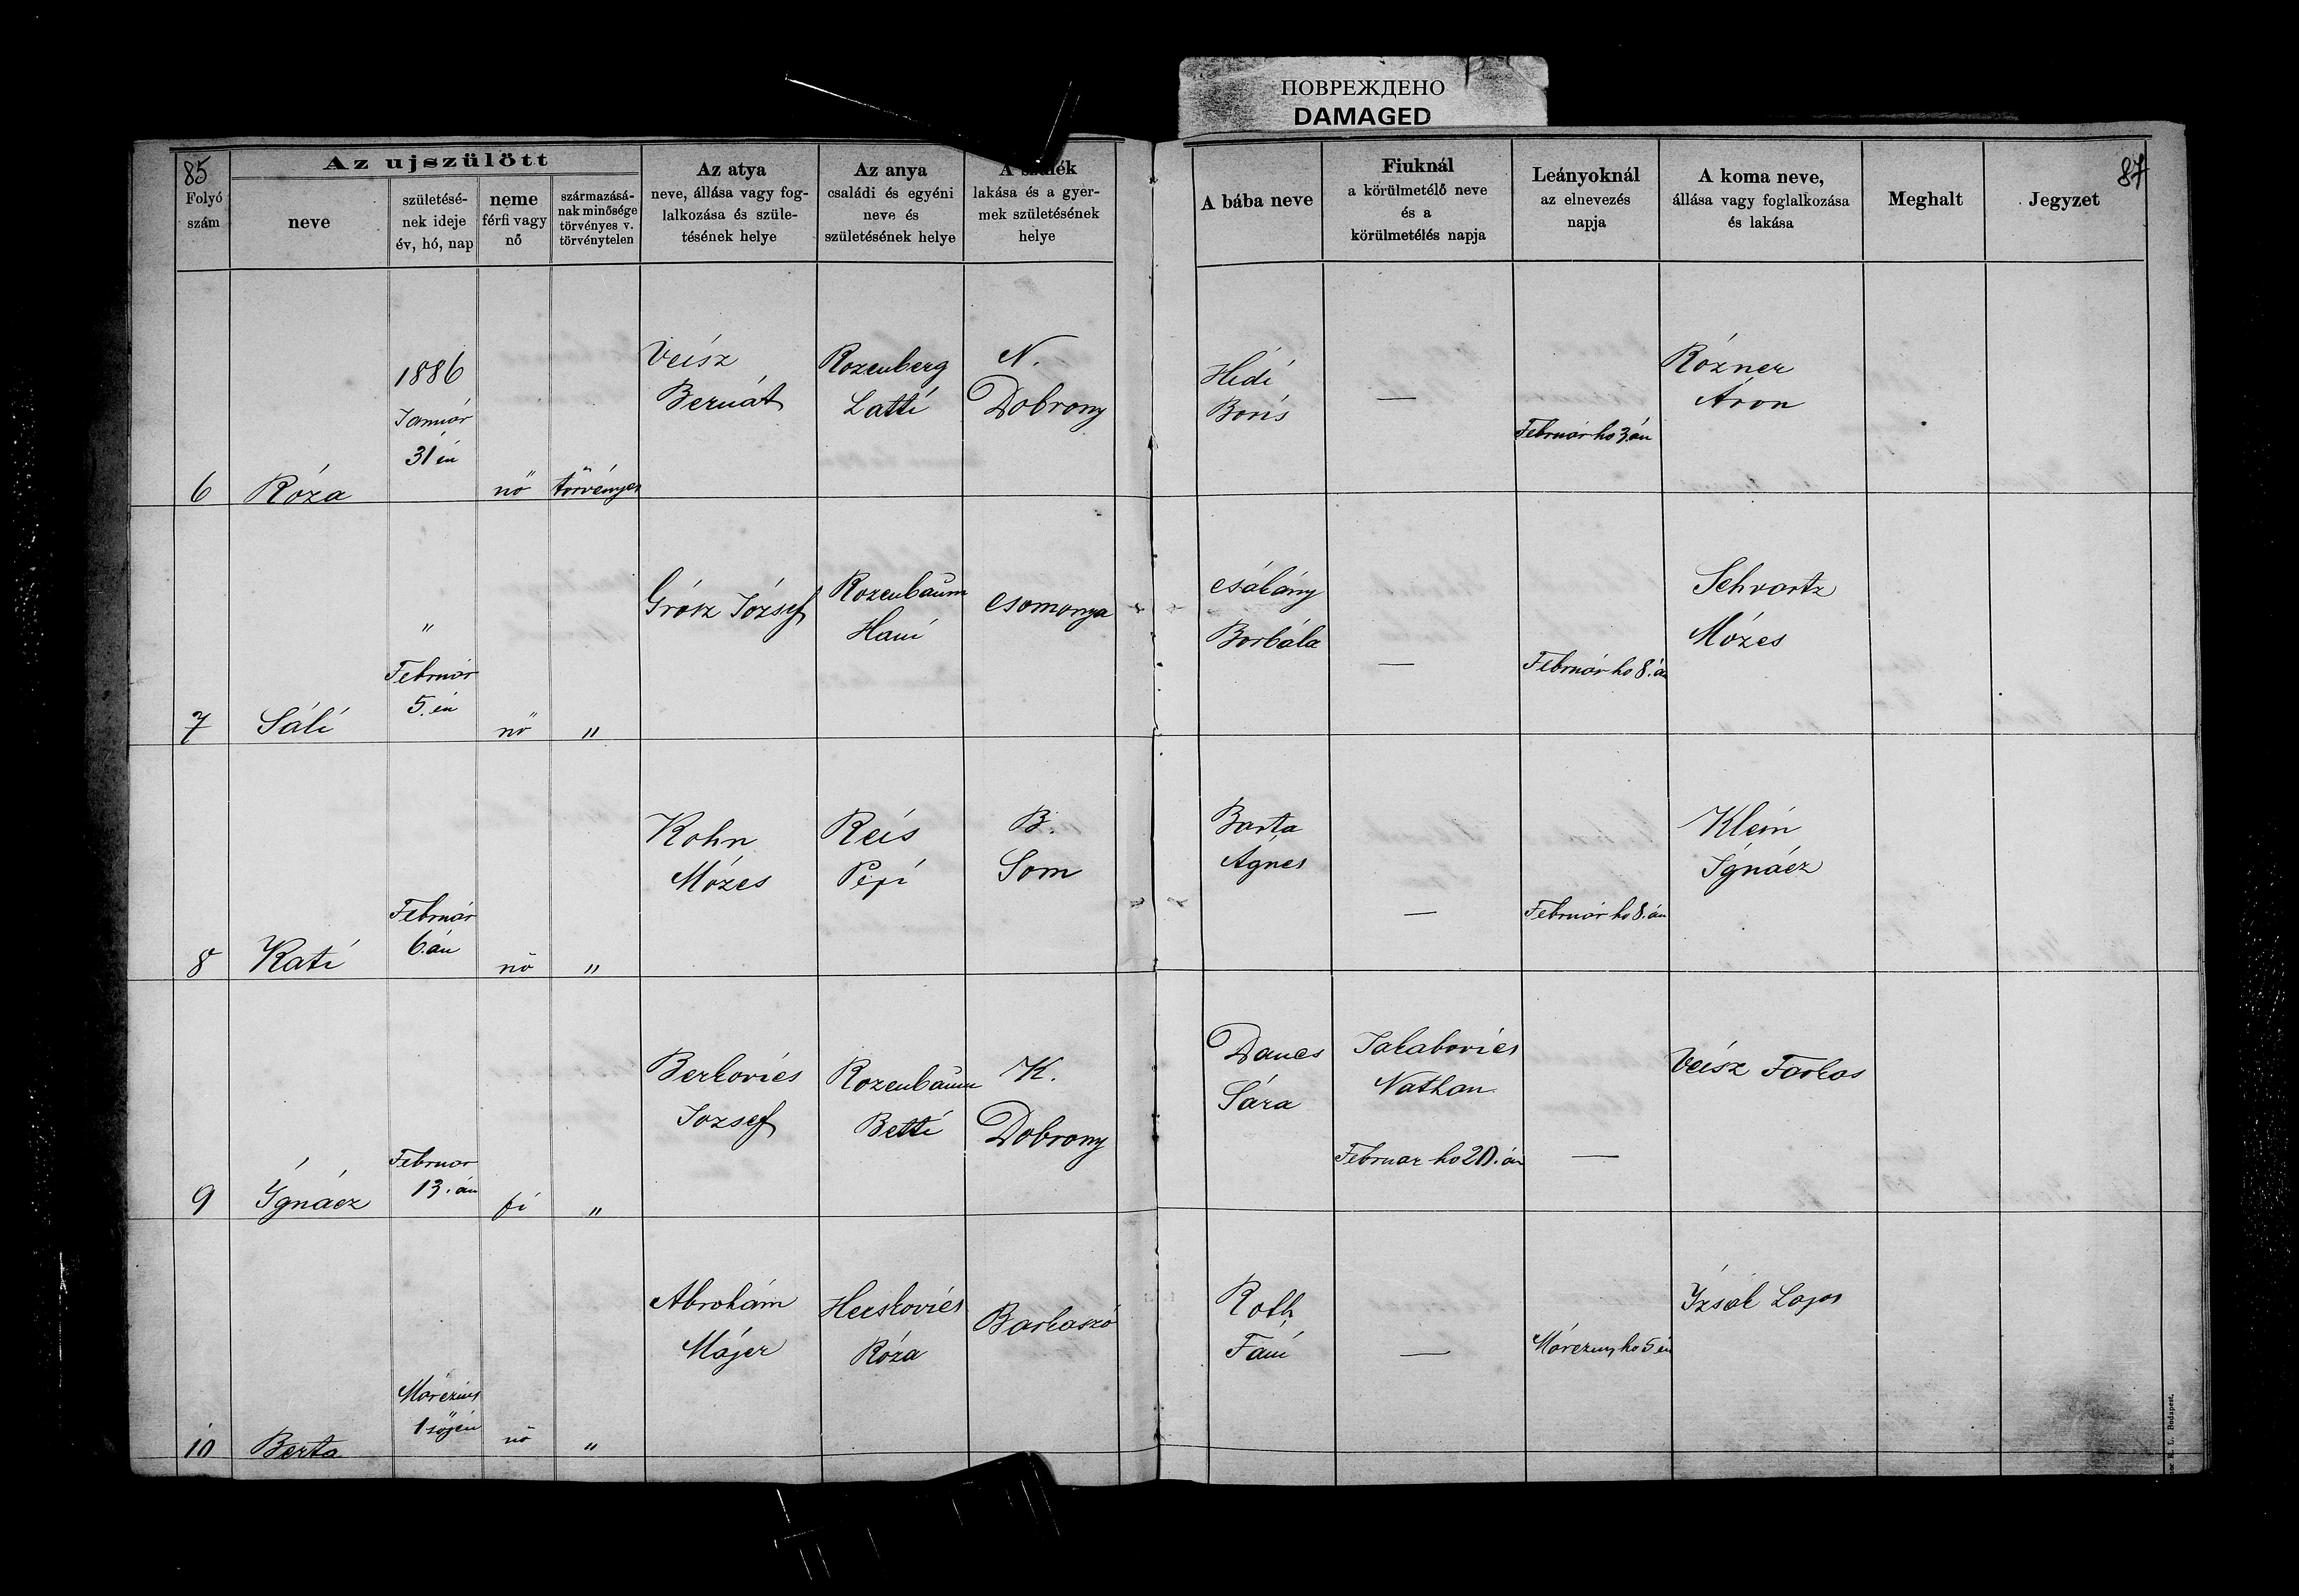 ПОВРЕЖДЕНО
DAMAGED
85
87
Az ujszülött
Folyó
szám
neve
születésé-
nek ideje
év, hó, nap
neme
férfi vagy
nő
származásá-
nak minősége
törvényes v.
törvénytelen
Az atya
neve, állása vagy fog-
lalkozása és szüle-
tésének helye
Az anya
családi és egyéni
neve és
születésének helye
A szülék
lakása és a gyer-
mek születésének
helye
A bába neve
Fiuknál
a körülmetélő neve
és a
körülmetélés napja
Leányoknál
az elnevezés
napja
A koma neve,
állása vagy foglalkozása
és lakása
Meghalt
Jegyzet
6
Róza
1886
Január
31 én
nö
törvényes
Veisz
Bernát
Rozenberg
Latti
N.
Dobrony
Hidi
Boris
—
Február ho 3.án
Rózner
Áron
7
Sáli
"
Február
5. én
nö
"
Grósz József
Rozenbaum
Hani
Csomonya
Csákány
Borbála
—
Február ho 8.án
Schvartz
Mózes
8
Kati
Február
6. án
nö
"
Kohn
Mózes
Reis
Pepi
B.
Som
Barta
Ágnes
—
Február ho 8. án
Klein
Ignácz
9
Ignácz
Februar
13. án
fi
"
Berkovics
Jozsef
Rozenbaum
Betti
K.
Dobrony
Dancs
Sára
Jakabovics
Nathan
Februar ho 20. án
—
Veisz Farkas
10
Berta
Márczius
1 söjén
nö
"
Abrahám
Májer
Herskovics
Róza
Barkaszó
Roth
Fáni
—
Márczius ho 5 én
Izsák Lajos